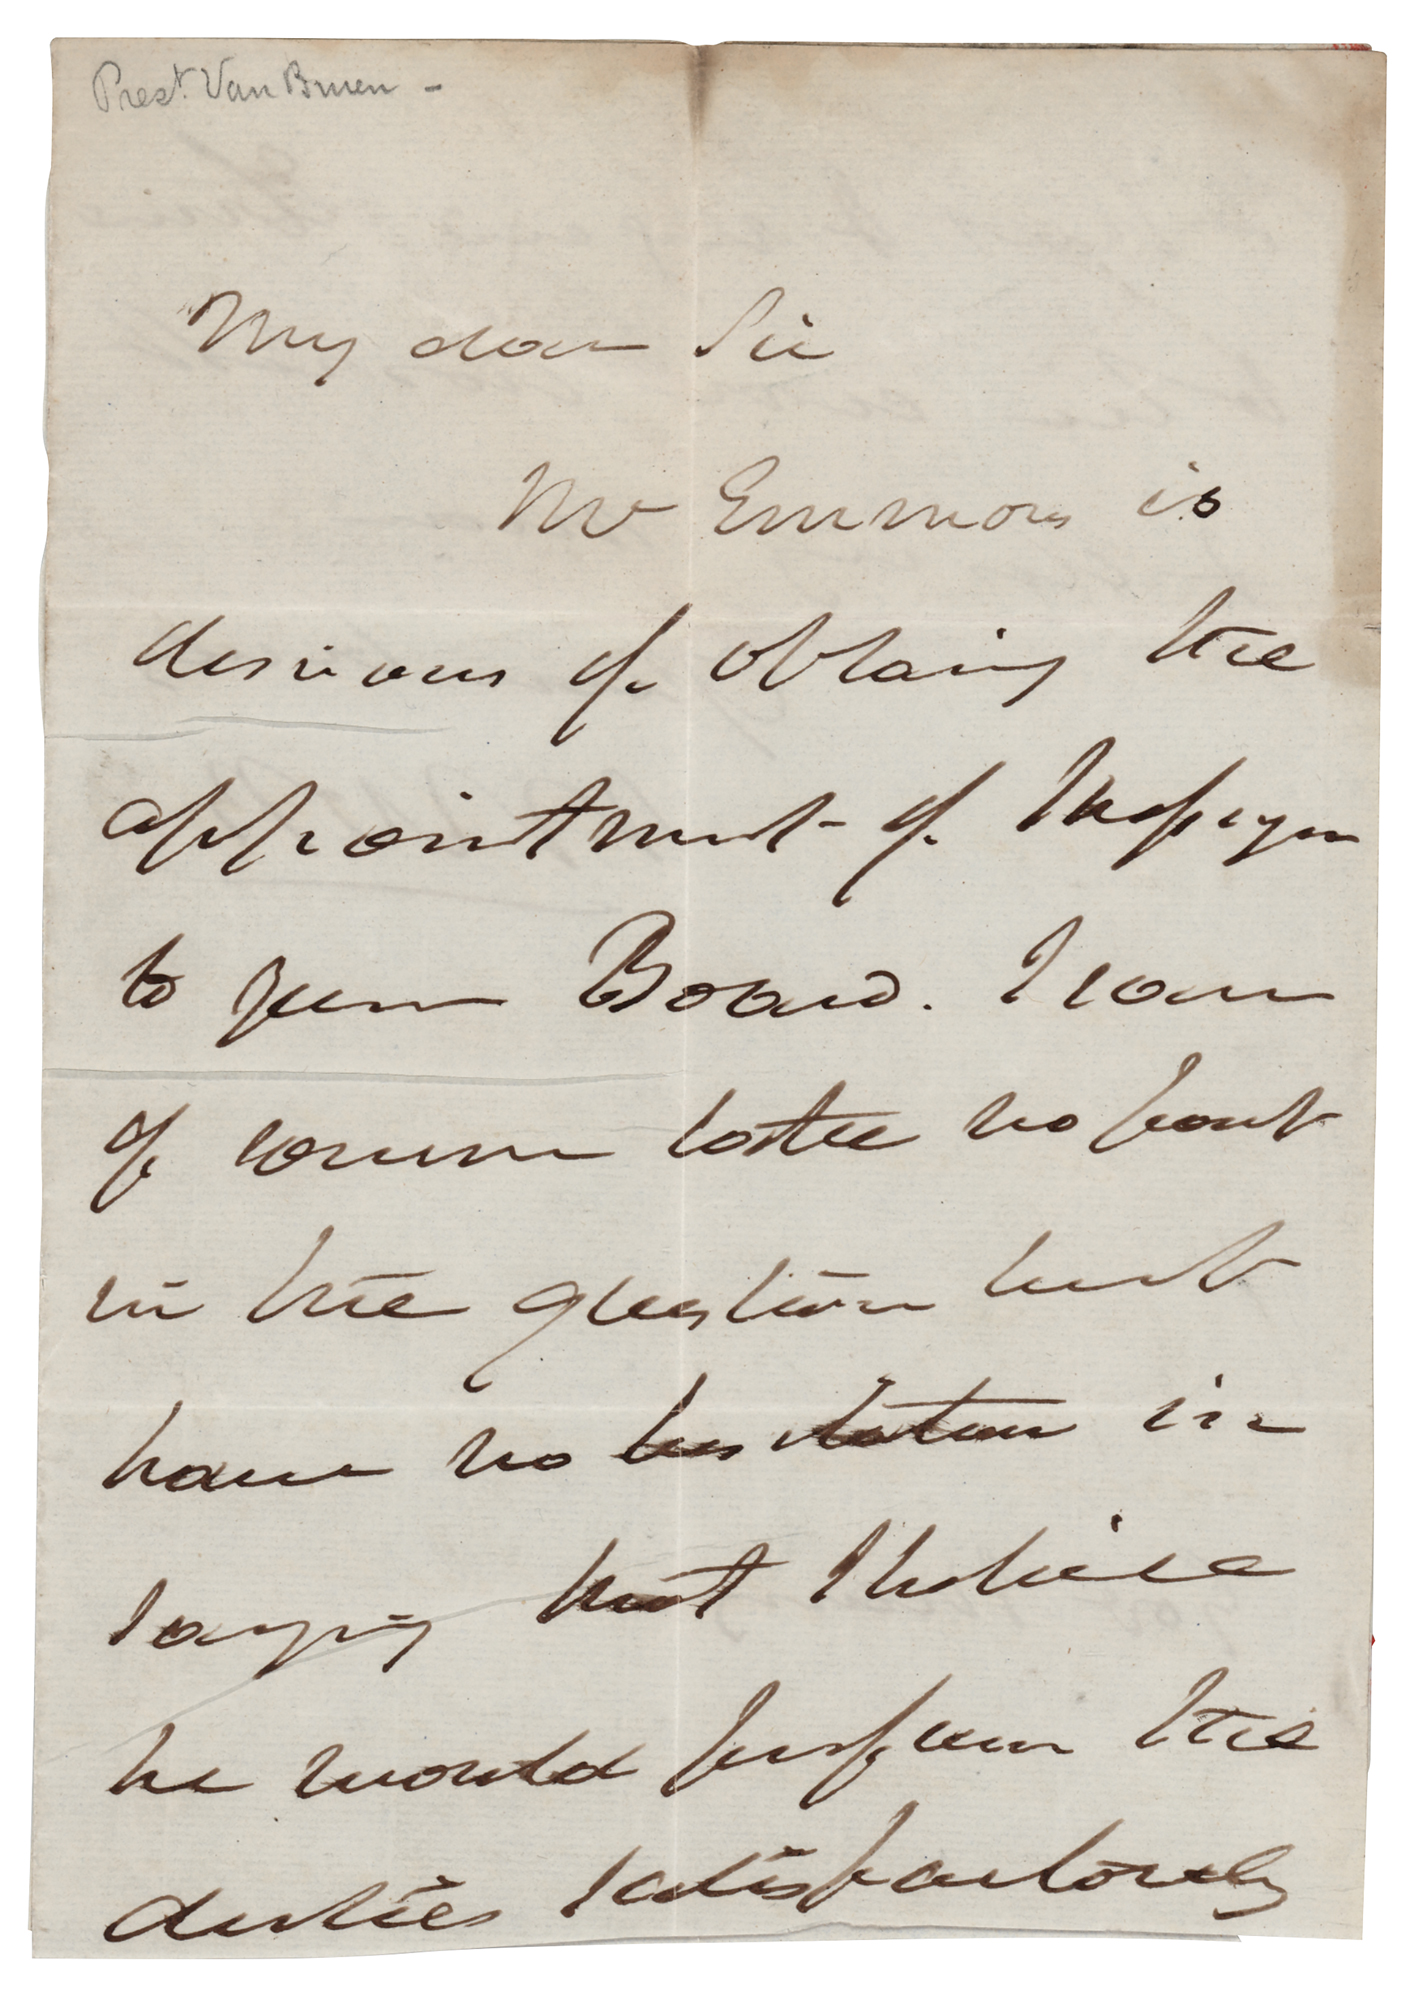 Prest. Van Buren -
My dear Sir
Mr Emmons is
desirous of obtaing the
appointment of
to your Board. I can
of course take no part
in the question but
have no hesitation in
saying that I believe
he would perform the
duties satisfactorily